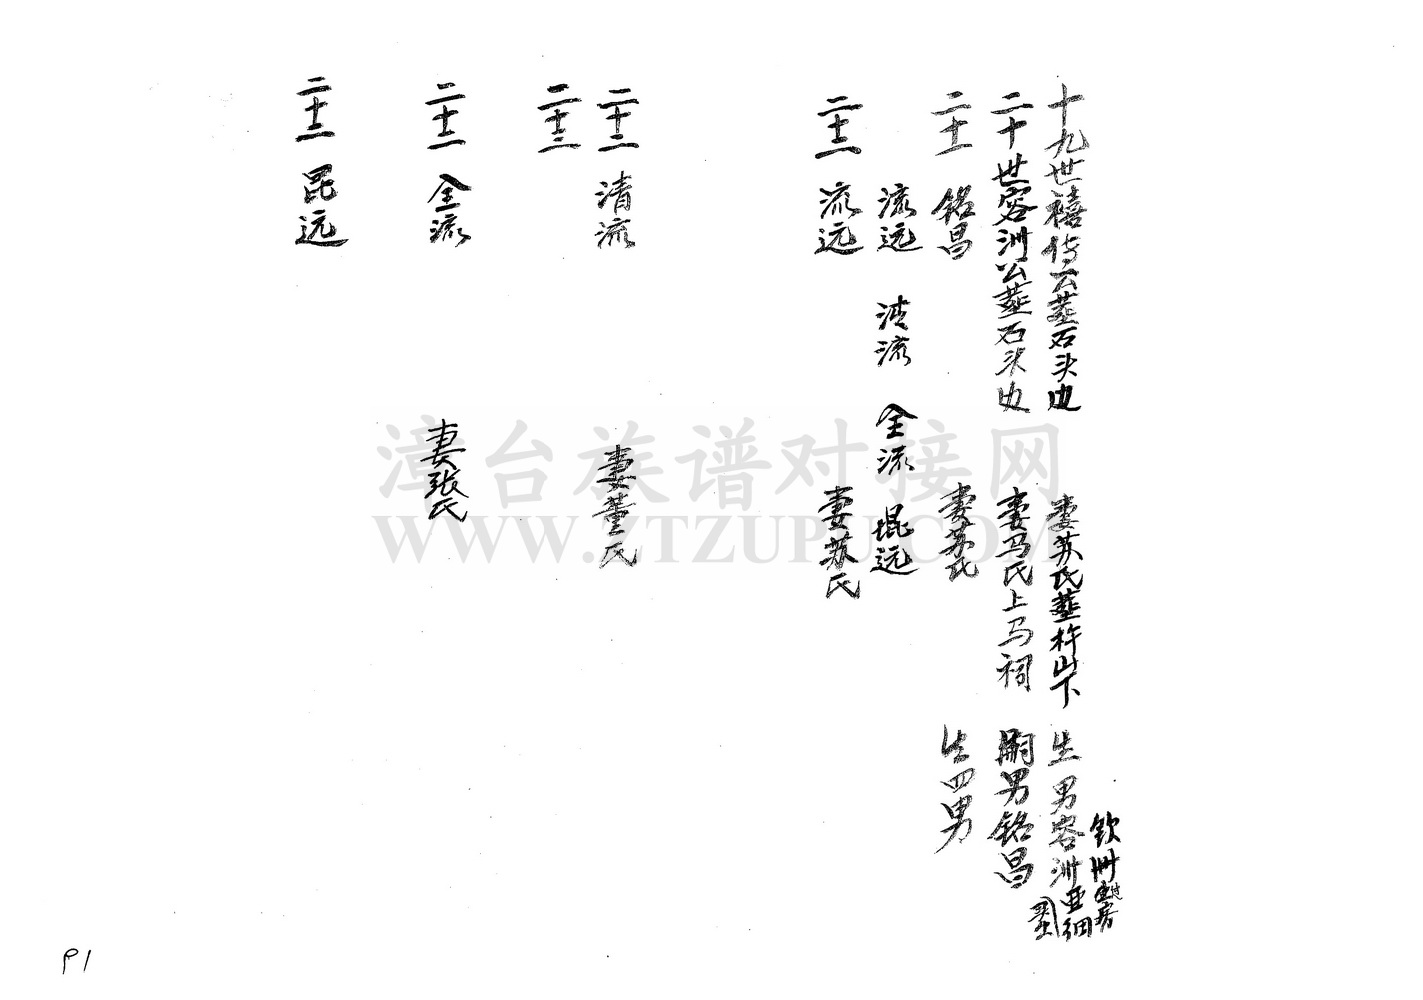 钦册 房
十九世禧传公葬石头边 妻苏氏葬杵山下 生男容洲亚细
二十世容洲公葬石头边 妻马氏上马祠 嗣男铭昌
二十一 铭昌 妻苏氏 生四男
流远 清流 全流 焜远
二十二 流远 妻苏氏
二十二 清流 妻董氏
二十三
二十二 全流 妻张氏
二十二 昆远
漳台族谱对接网
WWW.ZTZUPU.COM
P1